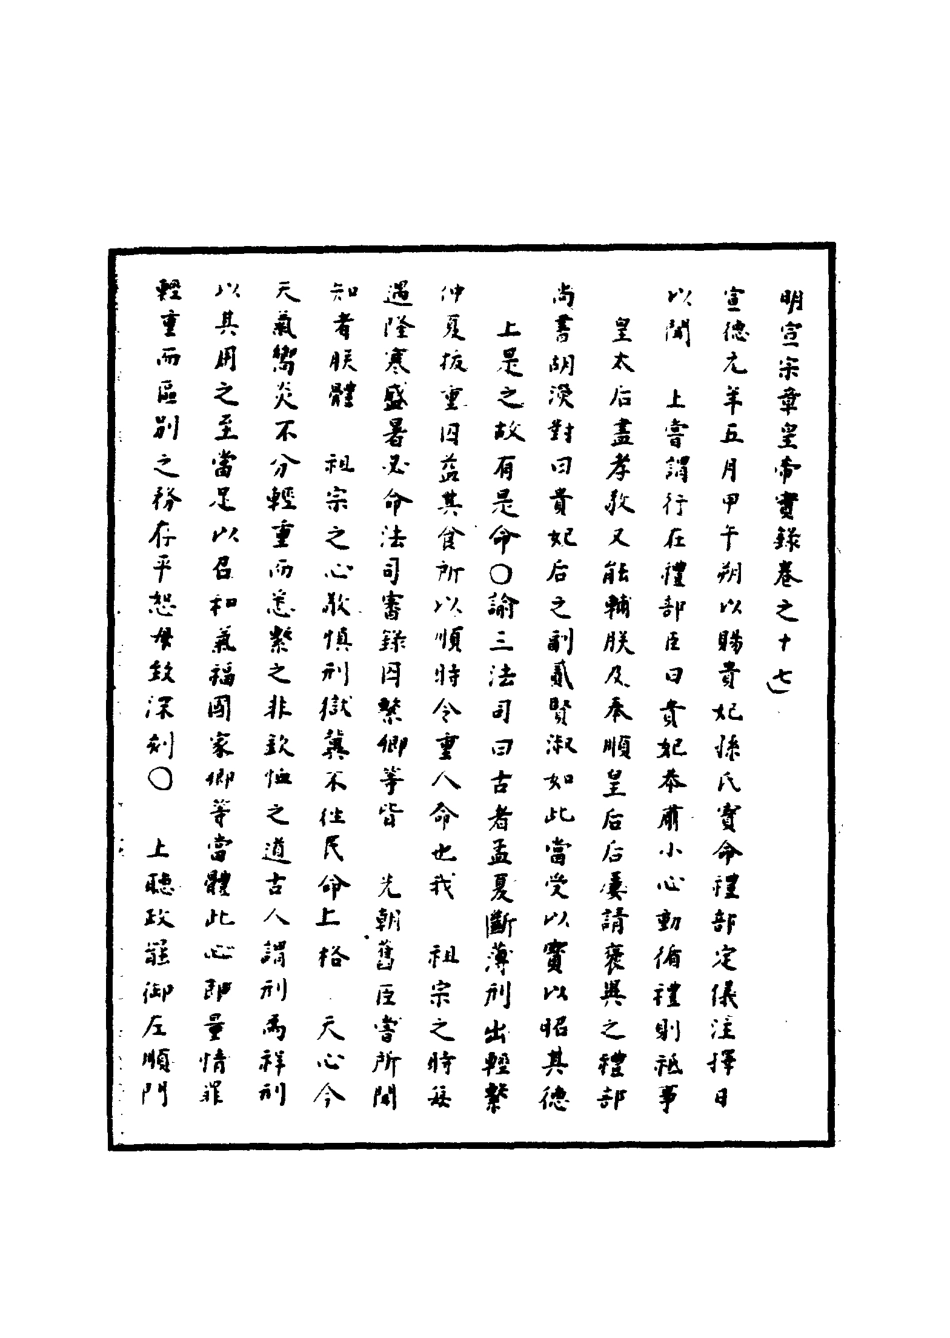 明宣宗章皇帝實錄卷之十七
宣德元年五月甲午朔以賜貴妃孫氏寶命禮部定儀注擇日
以聞　上嘗謂行在禮部臣曰貴妃恭肅小心動循禮則祗事
皇太后盡孝敬又能輔朕及奉順皇后后屢請褒異之禮部
尚書胡濙對曰貴妃后之副貳賢淑如此當受以寶以昭其德
上是之故有是命○諭三法司曰古者孟夏斷薄刑出輕繫
仲夏拔重囚益其食所以順時令重人命也我　祖宗之時每
遇隆寒盛暑必命法司審錄囚繫卿等皆　先朝舊臣嘗所聞
知者朕體　祖宗之心敬慎刑獄冀不枉民命上格　天心今
天氣嚮炎不分輕重而悉繫之非欽恤之道古人謂刑為祥刑
以其用之至當足以召和氣福國家卿等當體此心即量情罪
輕重而區別之務存平恕毋致深刻○　上聽政罷御左順門